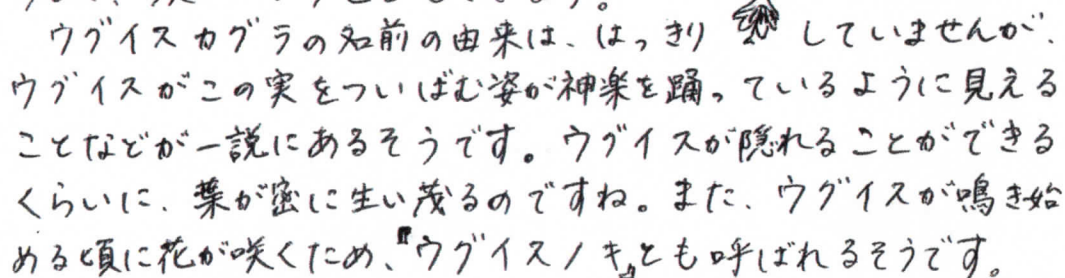 ウグイスカグラの名前の由来は、はっきりしていませんが、
ウグイスがこの実をついばむ姿が神楽を踊っているように見える
ことなどが一説にあるそうです。ウグイスが隠れることができる
くらいに、葉が密に生い茂るのですね。また、ウグイスが鳴き始
める頃に花が咲くため、『ウグイスノキ』とも呼ばれるそうです。